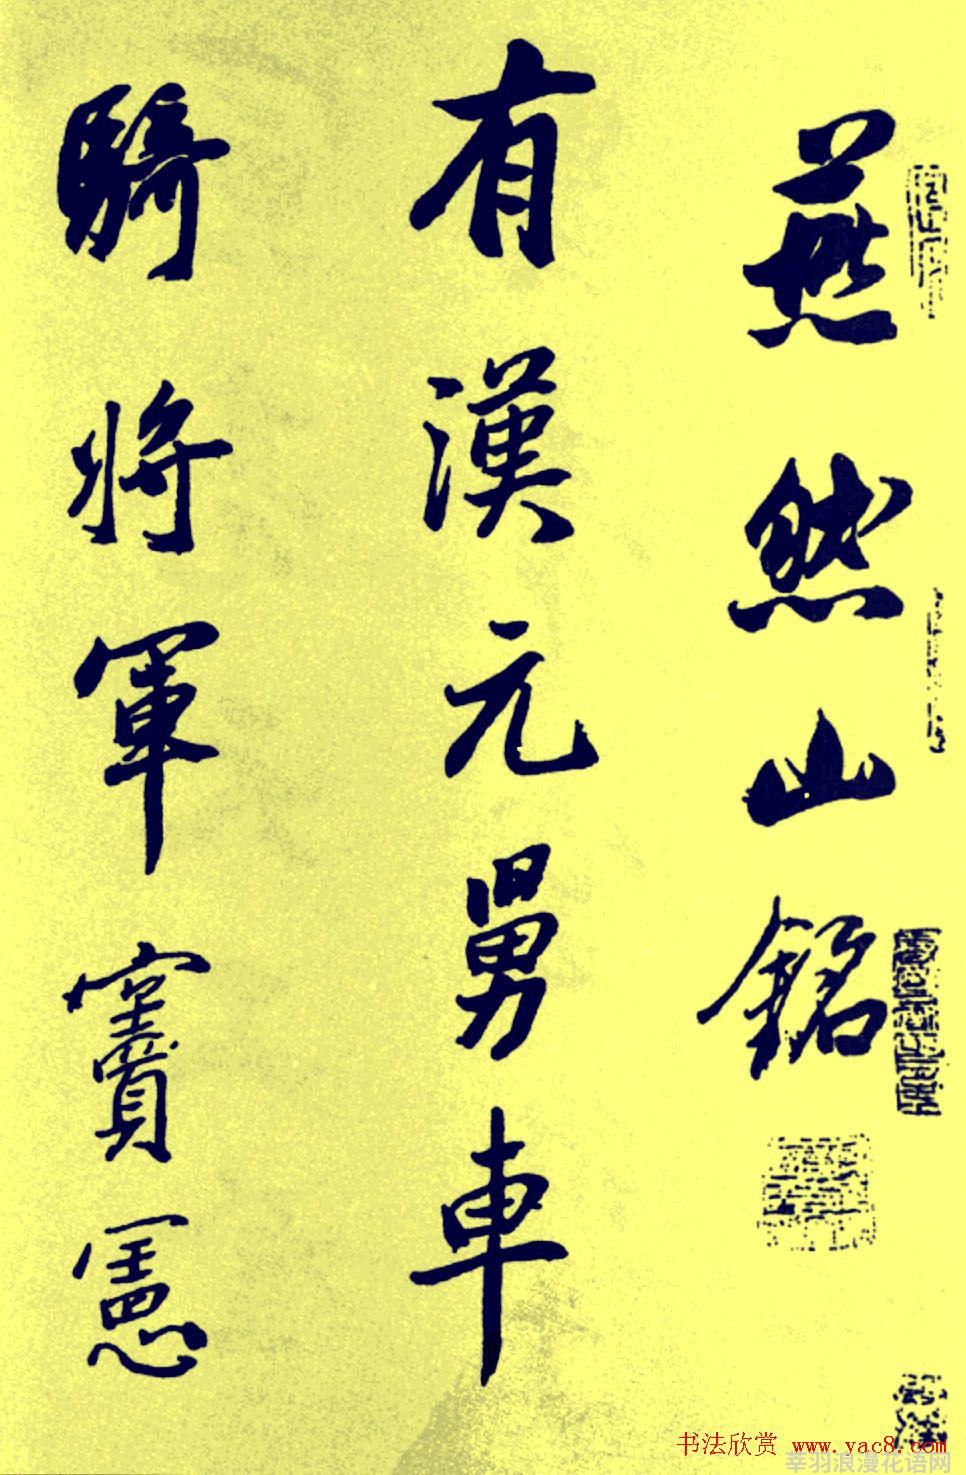 燕然山銘
有漢元舅車
騎將軍竇憲
书法欣赏 www.yac8.com
莘羽浪漫花语网